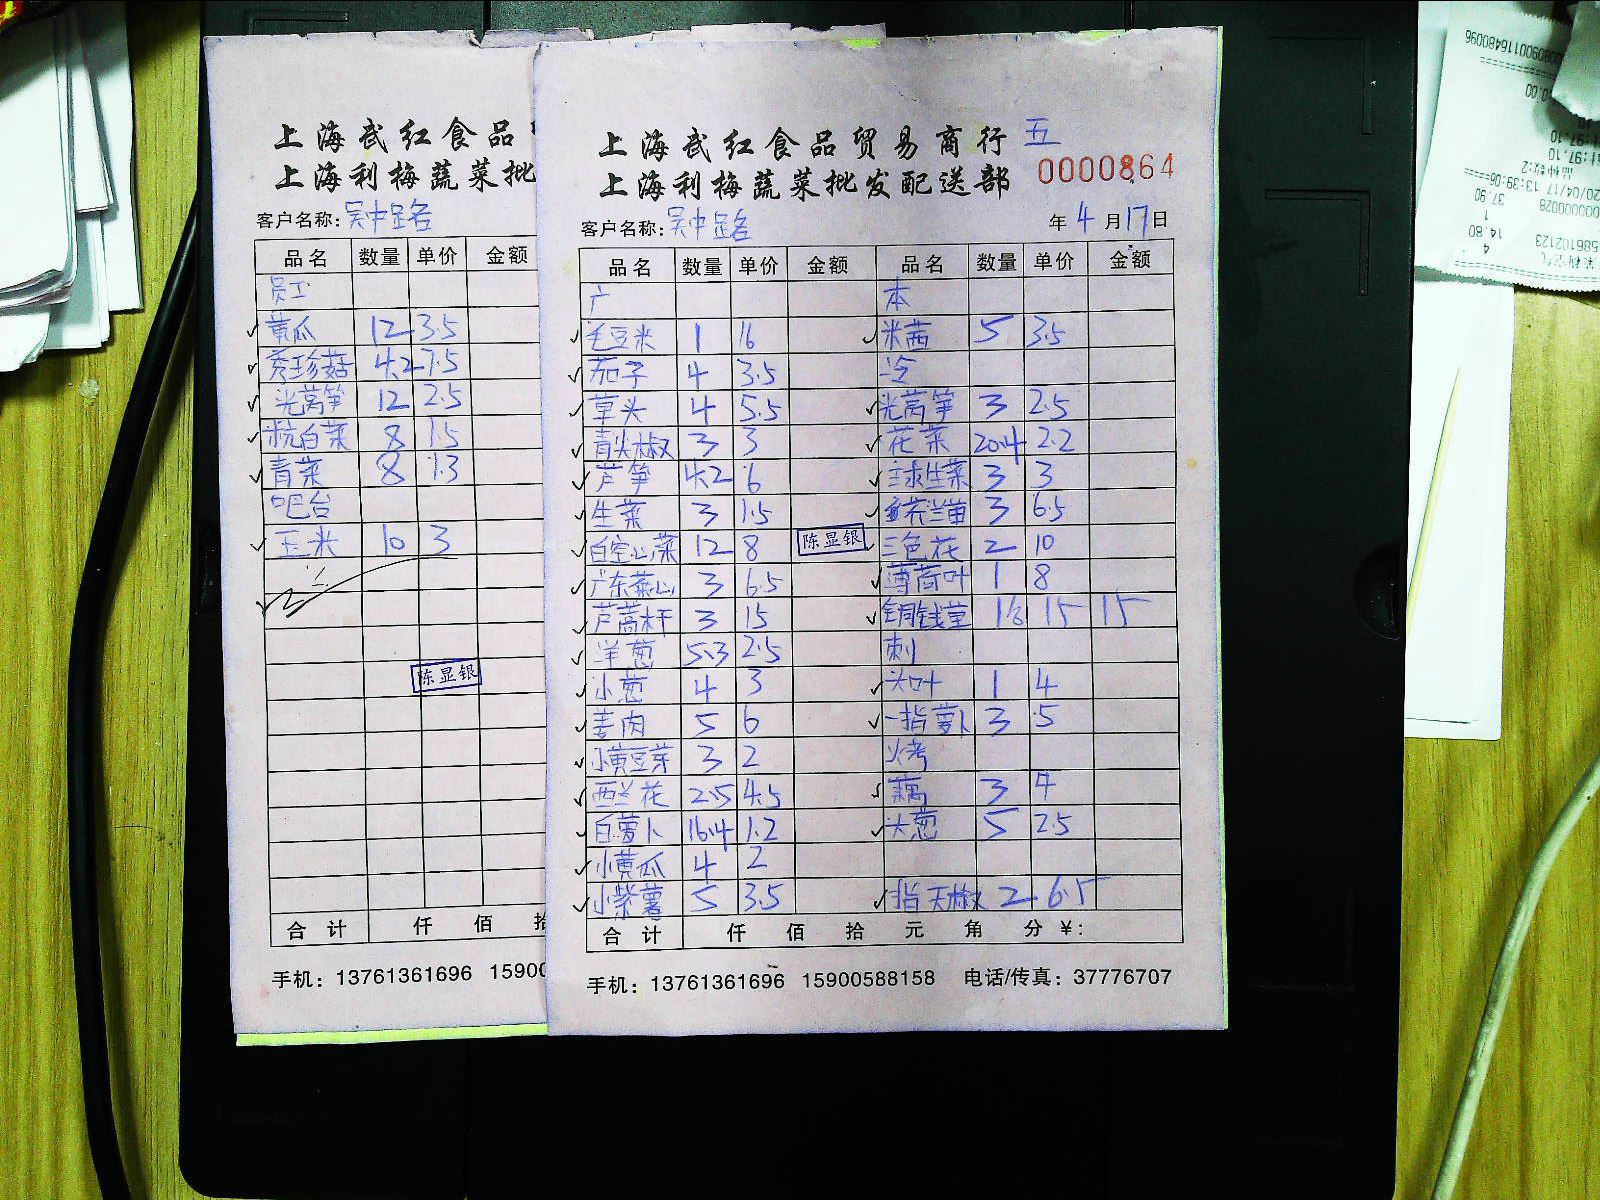 上海武红食品
上海利梅蔬菜批
客户名称:吴中路名
品名 数量 单价 金额
员工
黄瓜 12 3.5
秀珍菇 4.2 7.5
光莴笋 12 2.5
杭白菜 8 1.5
青菜 8 1.3
吧台
玉米 10 3
陈显银
合计 仟 佰 拾
手机: 13761361696 15900
上海武红食品贸易商行 五
上海利梅蔬菜批发配送部 0000864
客户名称:吴中路名 年 4 月 17 日
品名 数量 单价 金额 品名 数量 单价 金额
广 本
毛豆米 1 16 米茜 5 3.5
茄子 4 3.5 冷
草头 4 5.5 光莴笋 3 2.5
青尖椒 3 3 花菜 20.4 2.2
芦笋 4.2 6 球生菜 3 3
生菜 3 1.5 苗 3 6.5
白空心菜 12 8 陈显银 三色花 2 10
广东菜心 3 6.5 薄荷叶 1 8
芦蒿杆 3 15 铜钱草 1 15 15
洋葱 5.3 2.5 刺
小葱 4 3 大叶 1 4
姜肉 5 6 一指萝卜 3 5
小黄豆芽 3 2 烤
西兰花 2.5 4.5 藕 3 4
白萝卜 16.4 1.2 大葱 5 2.5
小黄瓜 4 2
小紫薯 5 3.5 指天椒 2 6.5
合计 仟 佰 拾 元 角 分 ¥:
手机: 13761361696 15900588158 电话/传真: 37776707